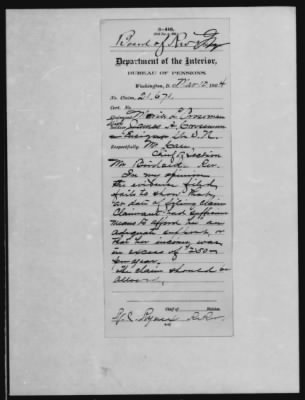 3-446.
Board of Rev
Department of the Interior,
BUREAU OF PENSIONS,
Washington, D. C., Mar 12, 1904
No. Claim, 21.671
Cert. No.
Maria L. Croseman
James A. Croseman
U. S. N.
Respectfully,
Mr.
Chief, Section
Mr. Rev.
In my opinion
the evidence filed
fails to show that,
at date of filing claim
Claimant had sufficient
means to afford her an
adequate support, or
that her income was
in excess of $250 00
per year.
The claim should be
allowed.
Chief of Division.